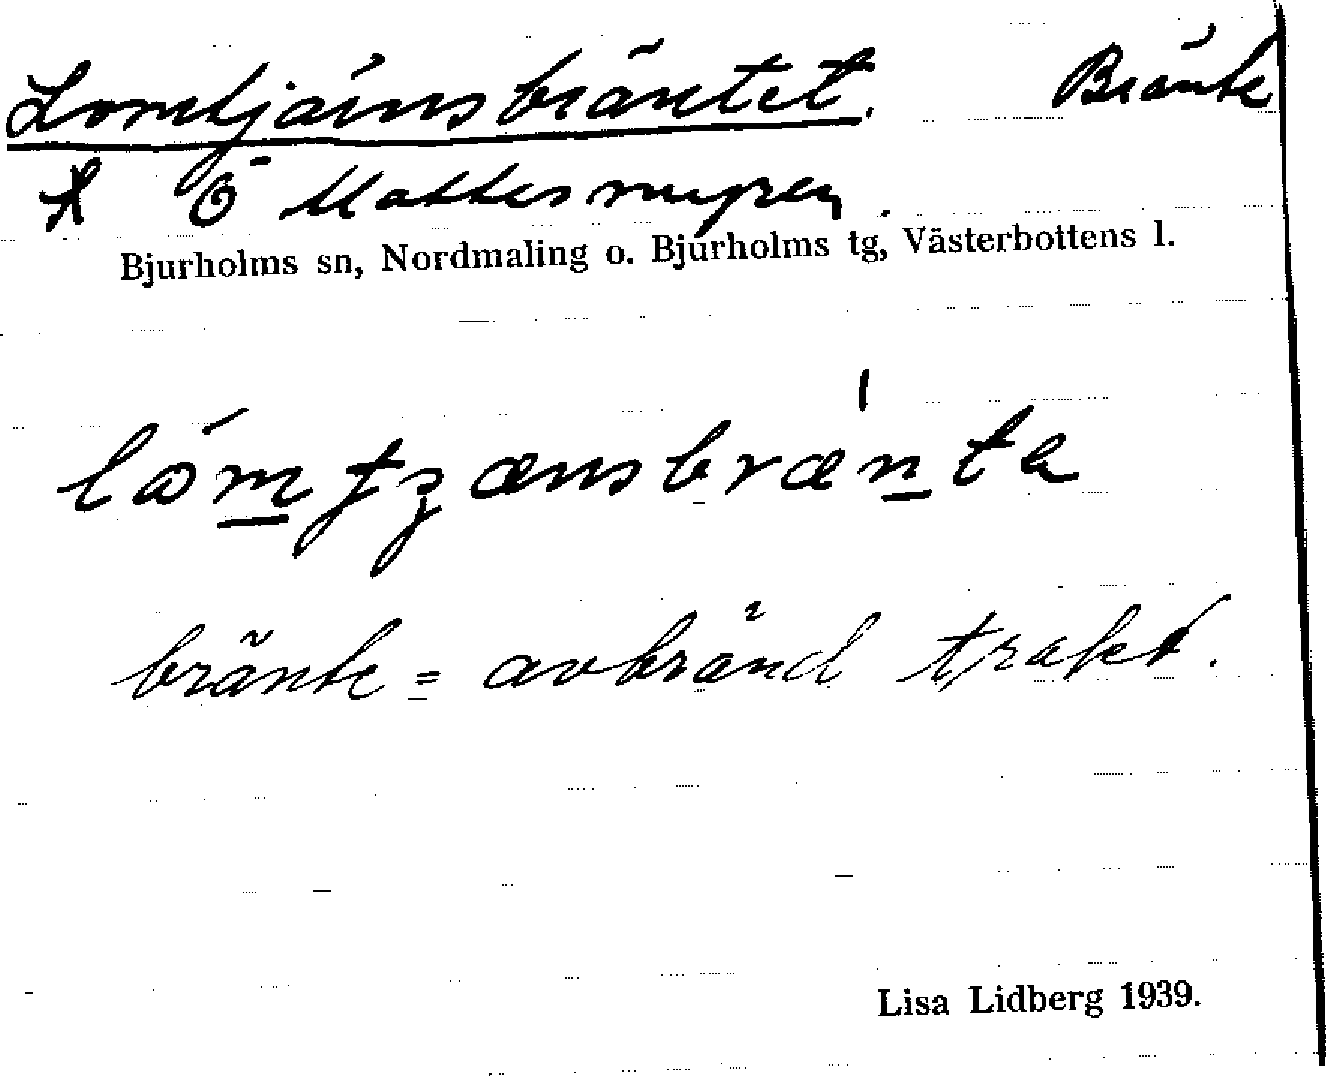 Lomtjärnsbräntet. Bränte
Ö Mattesmyren.
Bjurholms sn, Nordmaling o. Bjurholms tg, Västerbottens l.
bränte = avbränd trakt.
Lisa Lidberg 1939.